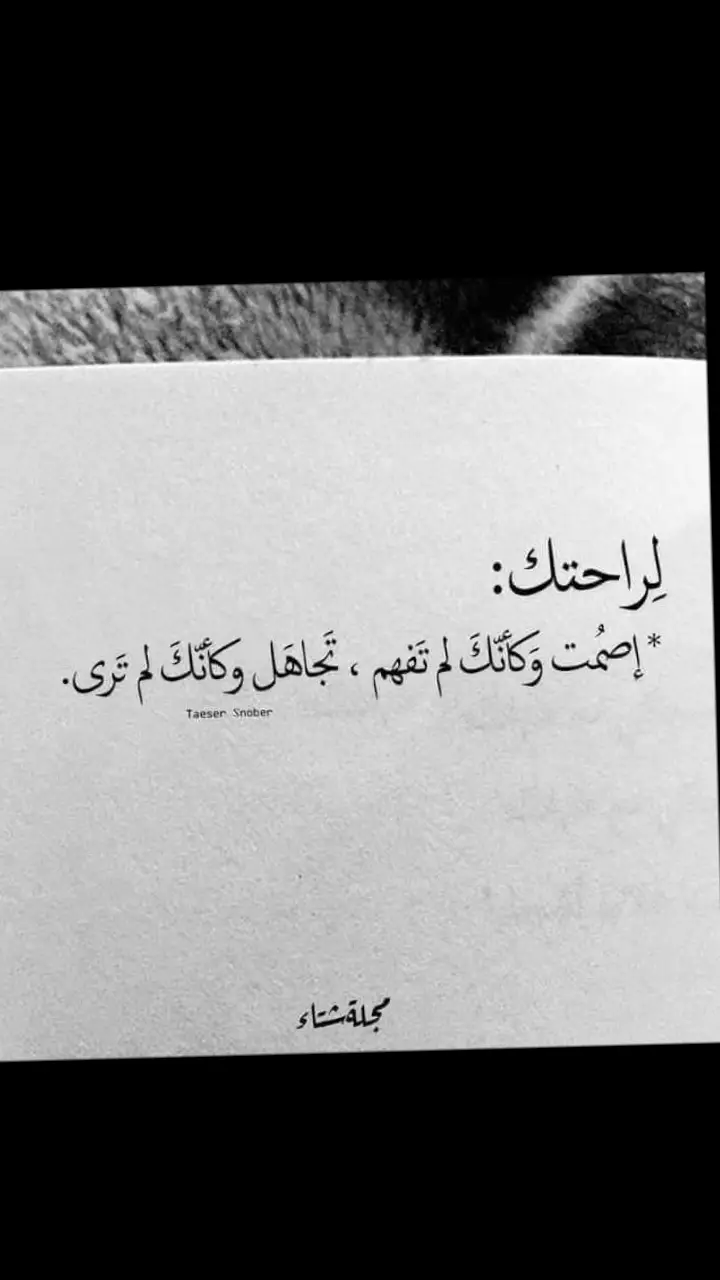 لِراحتك:
* إصمُت وَكأنّكَ لم تَفهم ، تَجاهَل وكأنّكَ لم تَرى.
Taeser Snober
مجلة شتاء